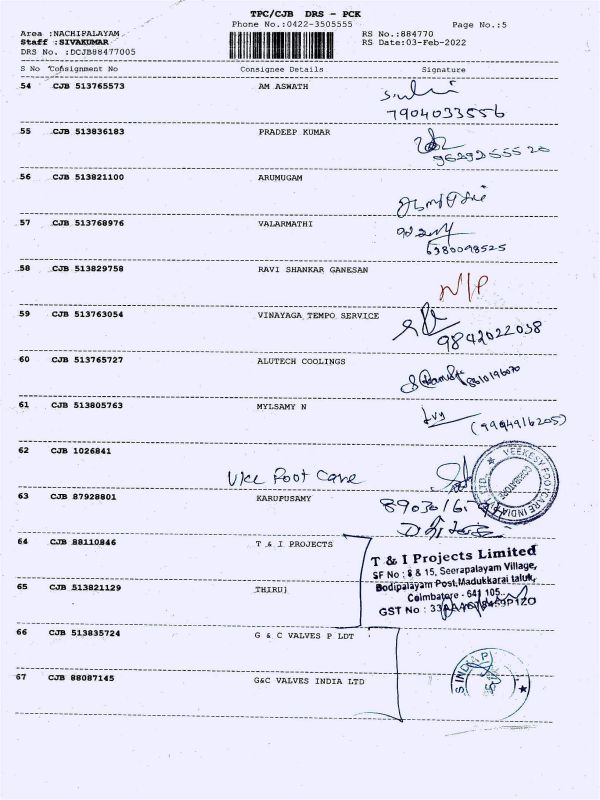 TPC/CJB DRS - PCK
Phone No.:0422-3505555
Page No.:5
Area :NACHIPALAYAM
RS No.:884770
Staff :SIVAKUMAR
RS Date:03-Feb-2022
DRS No. :DCJB88477005
S No Consignment No Consignee Details Signature
54 CJB 513765573 AM ASWATH
7904033556
55 CJB 513836183 PRADEEP KUMAR
56 CJB 513821100 ARUMUGAM
57 CJB 513768976 VALARMATHI
6380098525
58 CJB 513829758 RAVI SHANKAR GANESAN
N/P
59 CJB 513763054 VINAYAGA TEMPO SERVICE
9842022038
60 CJB 513765727 ALUTECH COOLINGS
8610196070
61 CJB 513805763 MYLSAMY N
(9994916205)
62 CJB 1026841
Vice Foot Care
VEEKESY FOOTCARE INDIA PVT LTD.
COIMBATORE
63 CJB 87928801 KARUPUSAMY
64 CJB 88110846 T & I PROJECTS
T & I Projects Limited
SF No : 8 & 15, Seerapalayam Village,
65 CJB 513821129 THIRUJ
Bodipalayam Post, Madukkarai taluk,
Coimbatore - 641 105.
GST No :
66 CJB 513835724 G & C VALVES P LDT
67 CJB 88087145 G&C VALVES INDIA LTD